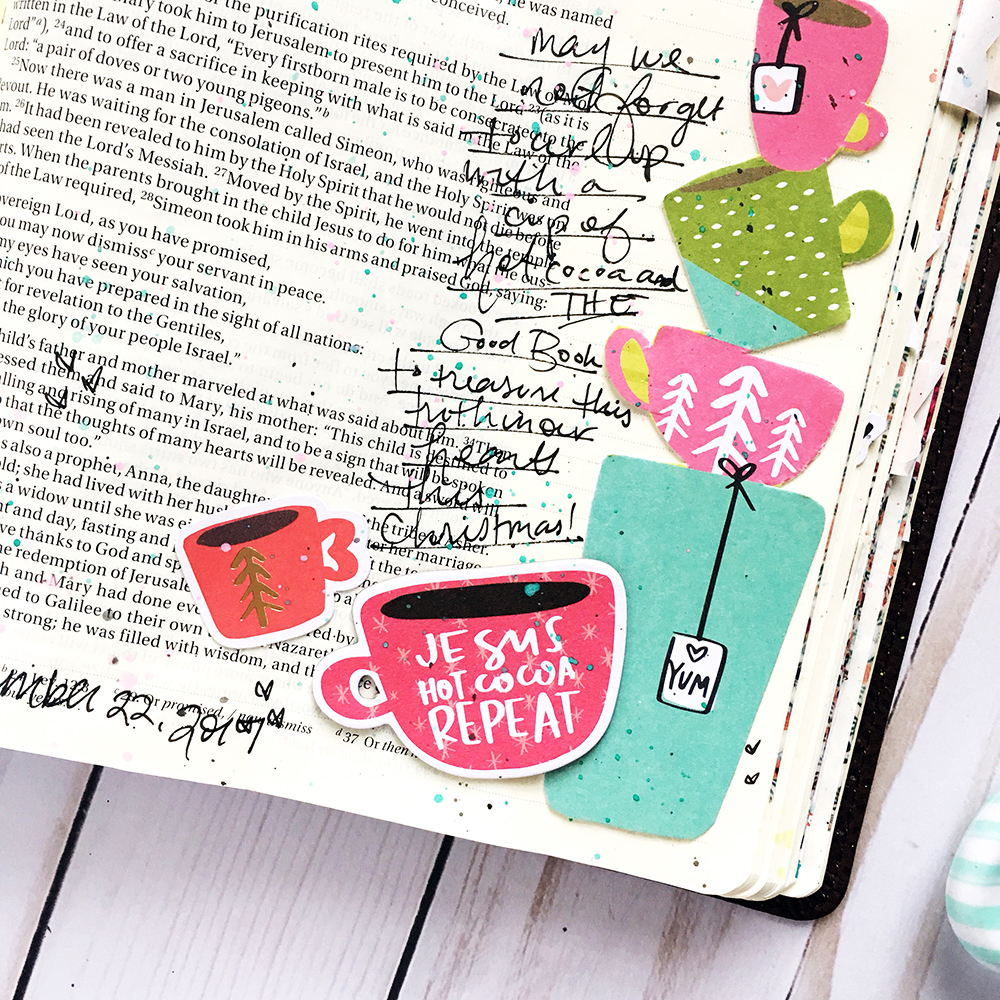 conceived.
he was named
the purification rites required by the Law
took him to Jerusalem to present him to the Lord 23(as it is
written in the Law of the Lord, “Every firstborn male is to be consecrated to the
Lord”a), 24and to offer a sacrifice in keeping with what is said in the Law of the
Lord: “a pair of doves or two young pigeons.”b
25Now there was a man in Jerusalem called Simeon, who was righteous and
devout. He was waiting for the consolation of Israel, and the Holy Spirit was
26It had been revealed to him by the Holy Spirit that he would not die before
had seen the Lord’s Messiah. 27Moved by the Spirit, he went into the temple
When the parents brought in the child Jesus to do for him what the
of the Law required, 28Simeon took him in his arms and praised God, saying:
Sovereign Lord, as you have promised,
you may now dismissc your servant in peace.
my eyes have seen your salvation,
which you have prepared in the sight of all nations:
for revelation to the Gentiles,
the glory of your people Israel.”
child’s father and mother marveled at what was said about him. 34
and said to Mary, his mother: “This child is destined to
rising of many in Israel, and to be a sign that will be spoken
that the thoughts of many hearts will be revealed. And a sword will
own soul too.”
also a prophet, Anna, the daughter
the tribe
she had lived with her
her marriage
a widow until she was
day, fasting and
thanks to God and
the redemption of
and Mary had done
to Galilee to their own
strong; he was filled with wisdom, and the
Or promised
dismiss
d 37 Or then
may we
not forget
to curl up
with a
cup of
hot cocoa and
THE
Good Book
to treasure this
truth in our
hearts
this
Christmas!
22, 2017
JESUS
HOT COCOA
REPEAT
YUM